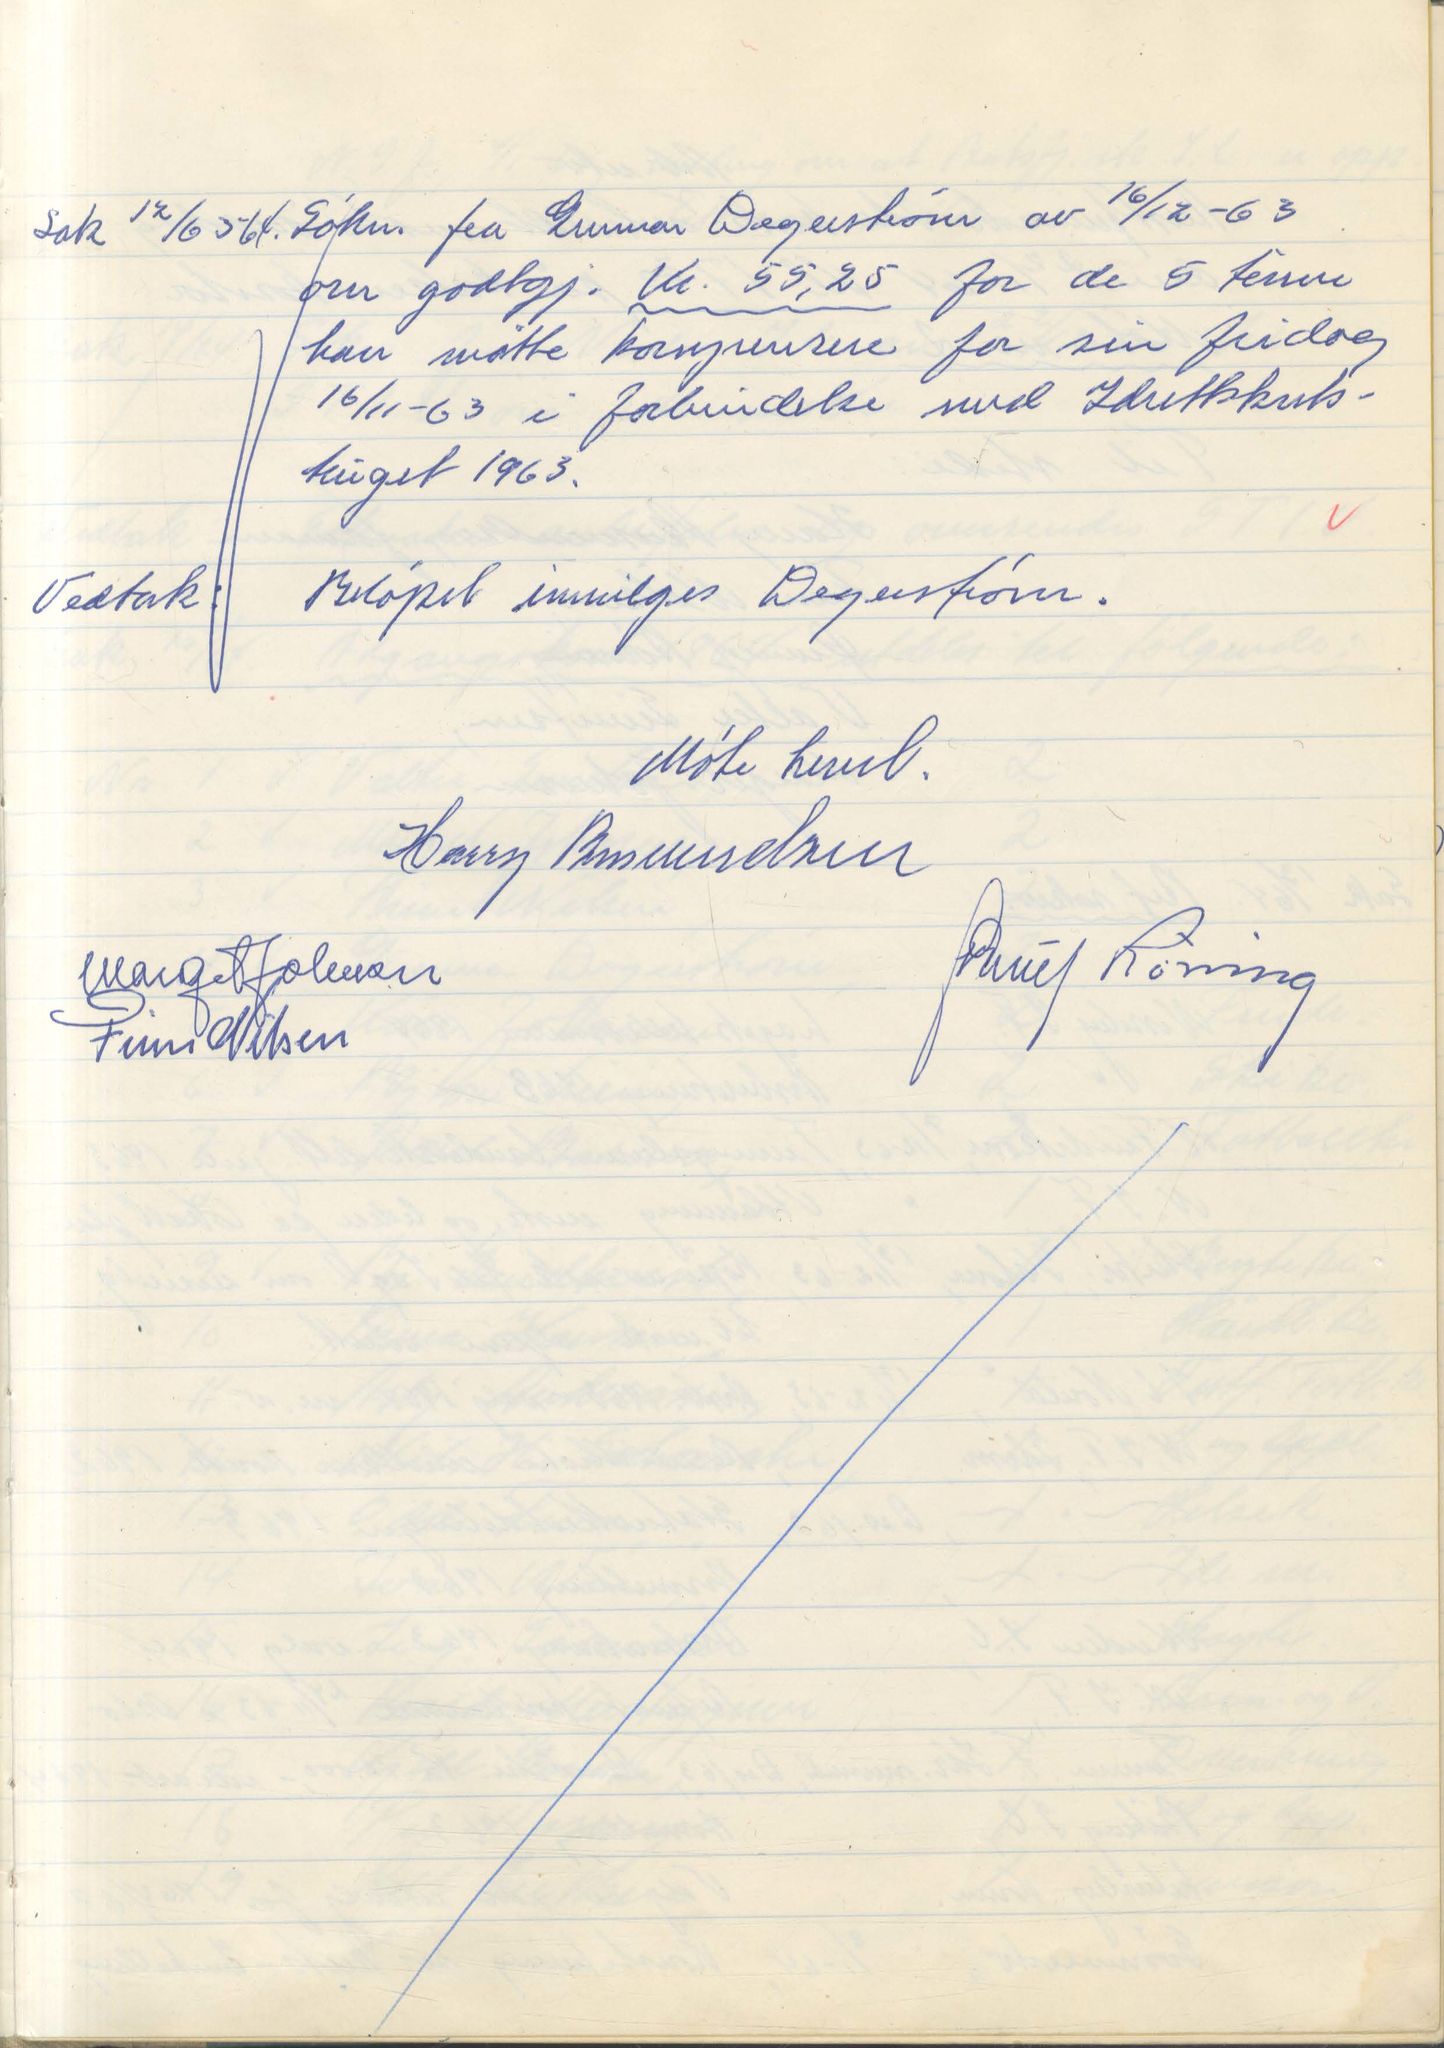 Sak 12/63-64. Søkn. fra Gunnar Degerstrøm av 16/12-63
om godtgj. Kr. 55,25 for de 5 timene
han måtte kompensere for sin fridag
16/11-63 i forbindelse med Idrettskrets-
tinget 1963.
Vedtak: Beløpet innvilges Degerstrøm.
Møte hevet.
Harry Amundsen
Margit Johnson
Røning
Finn Nilsen